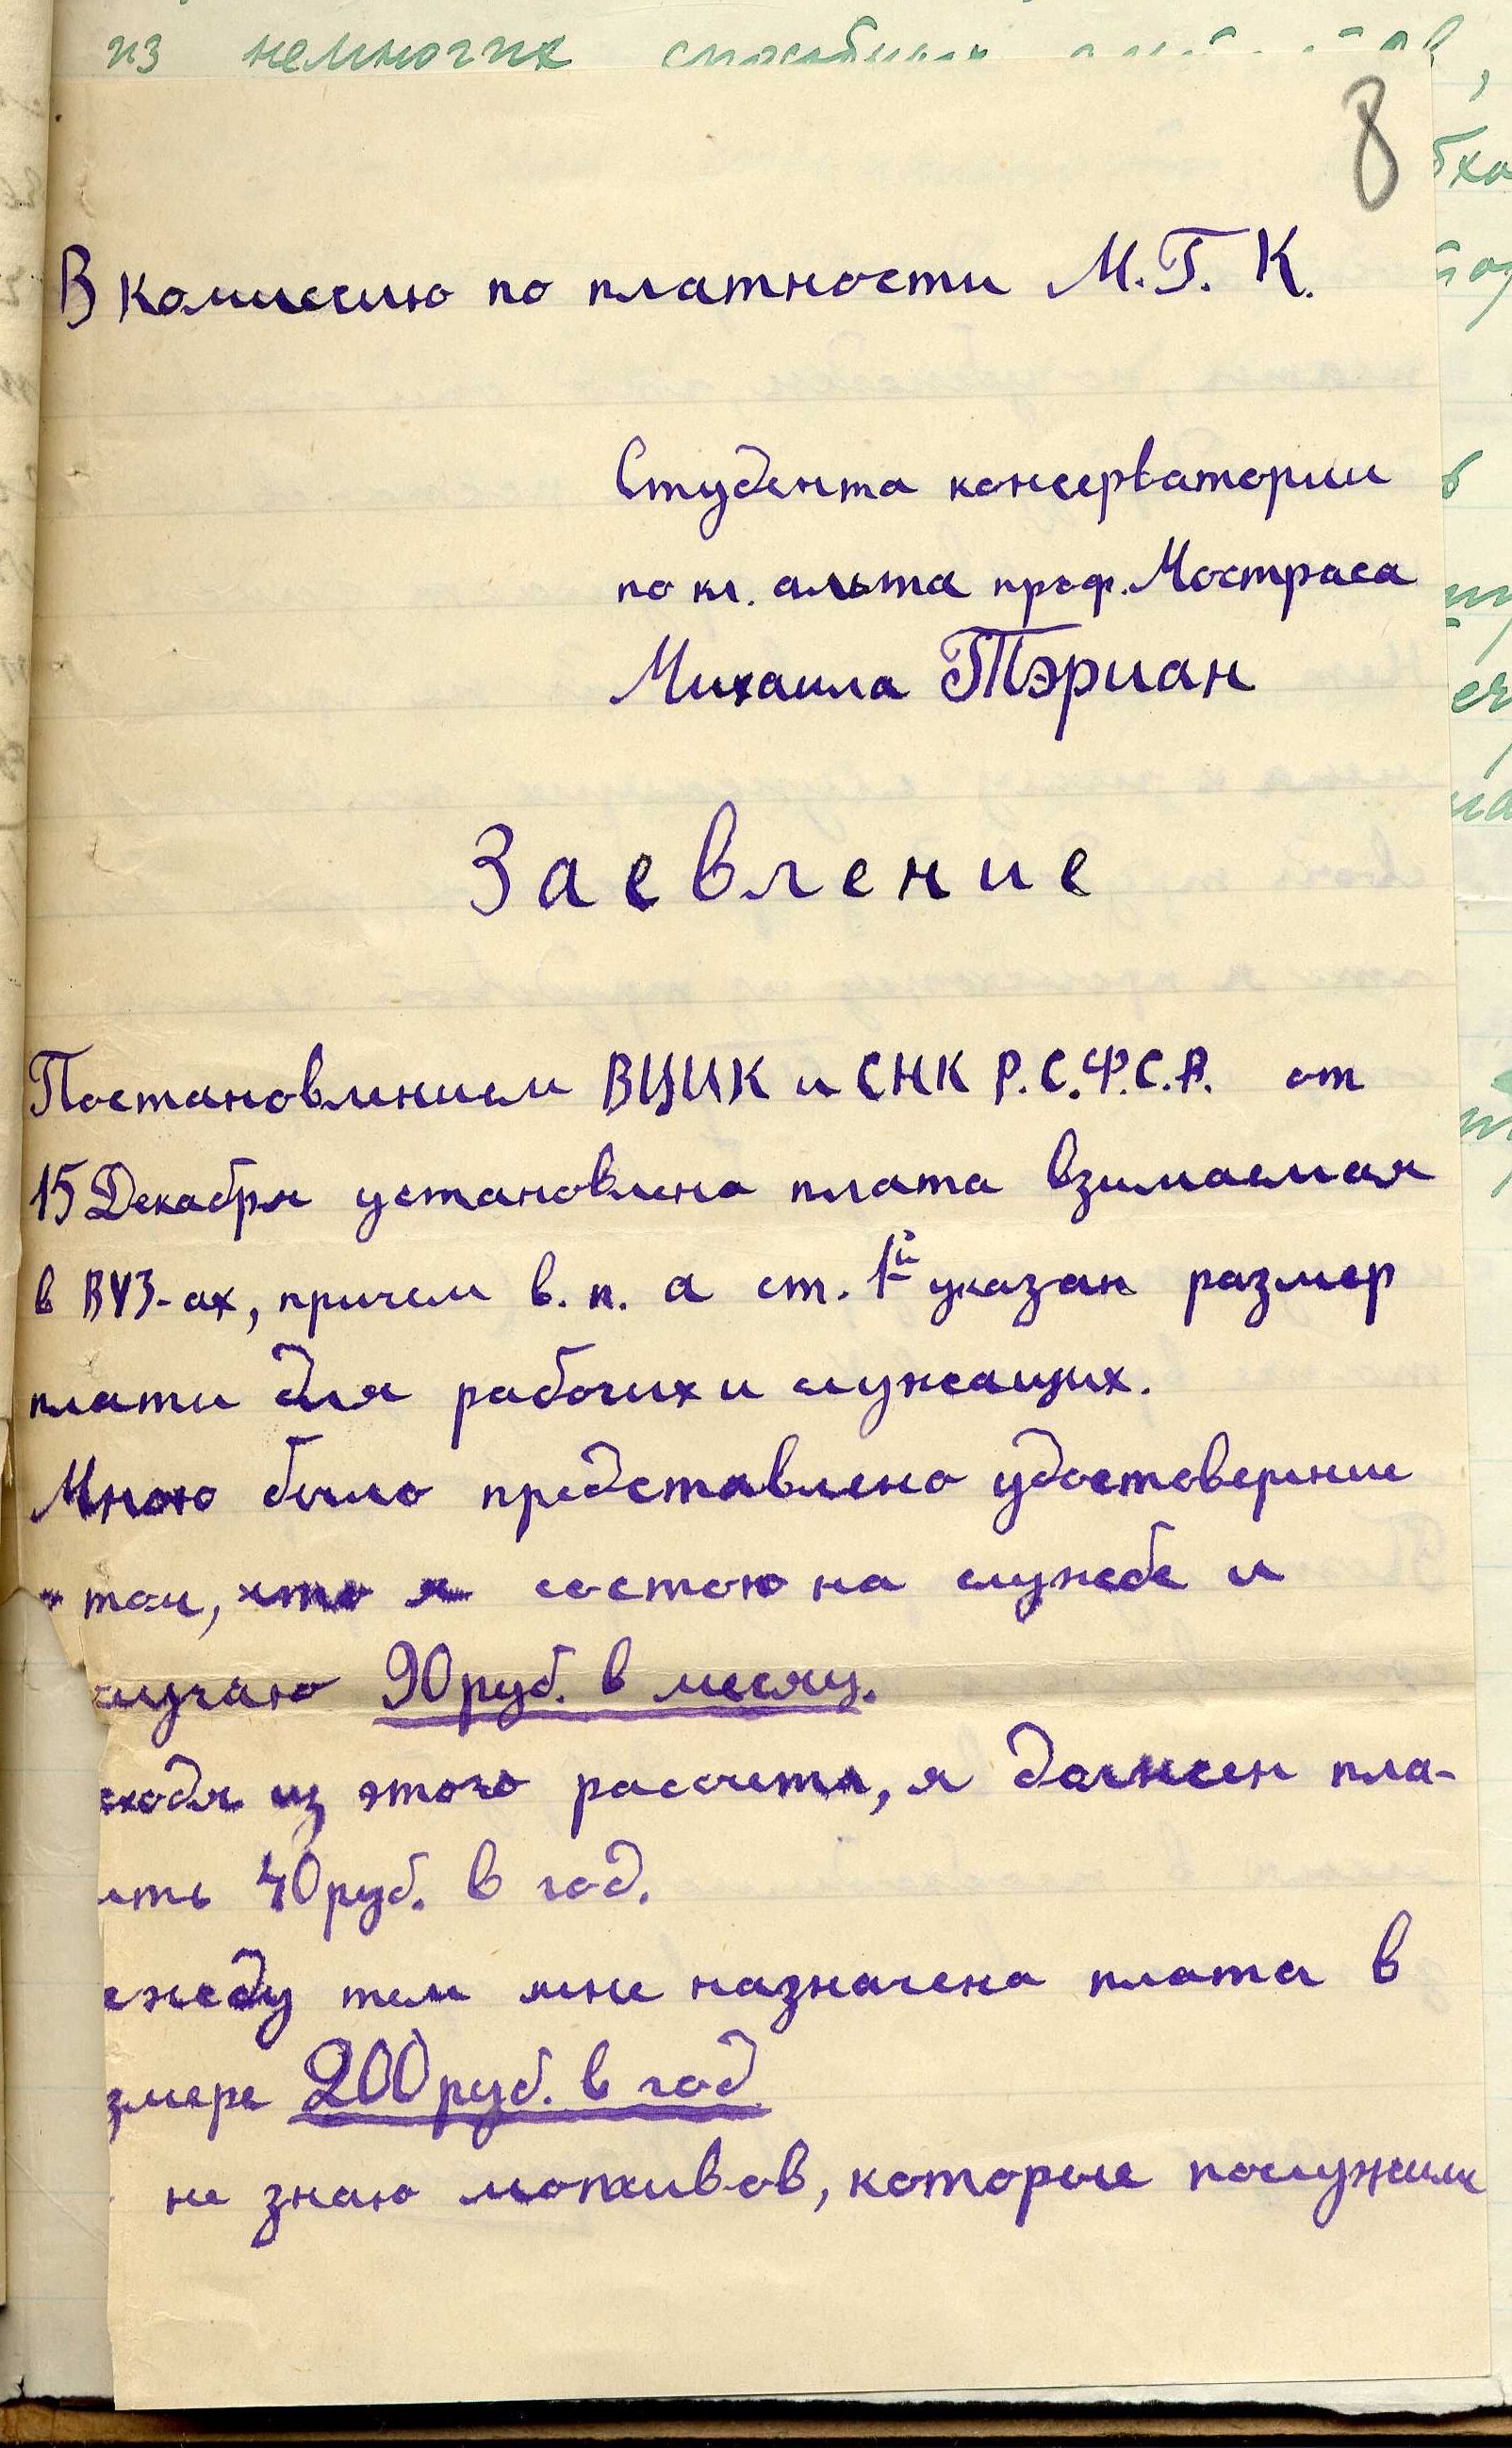 из немногих
8
В комиссию по платности М.Г.К.
Студента консерватории
по кл. альта проф. Мостраса
Михаила Тэриан
Заевление
Постановлением ВЦИК и СНК Р.С.Ф.С.Р. от
15 Декабря установлена плата взимаемая
в ВУЗ-ах, причем в. п. а ст. 1й указан размер
плати для рабочих и служащих.
Мною было представлено удостоверение
том, что я состою на службе и
лучаю 90 руб. в месяц.
сходя из этого рассчета, я должен пла-
ить 40 руб. в год.
ежду тем мне назначена плата в
змере 200 руб. в год
не знаю мотивов, которые послужили